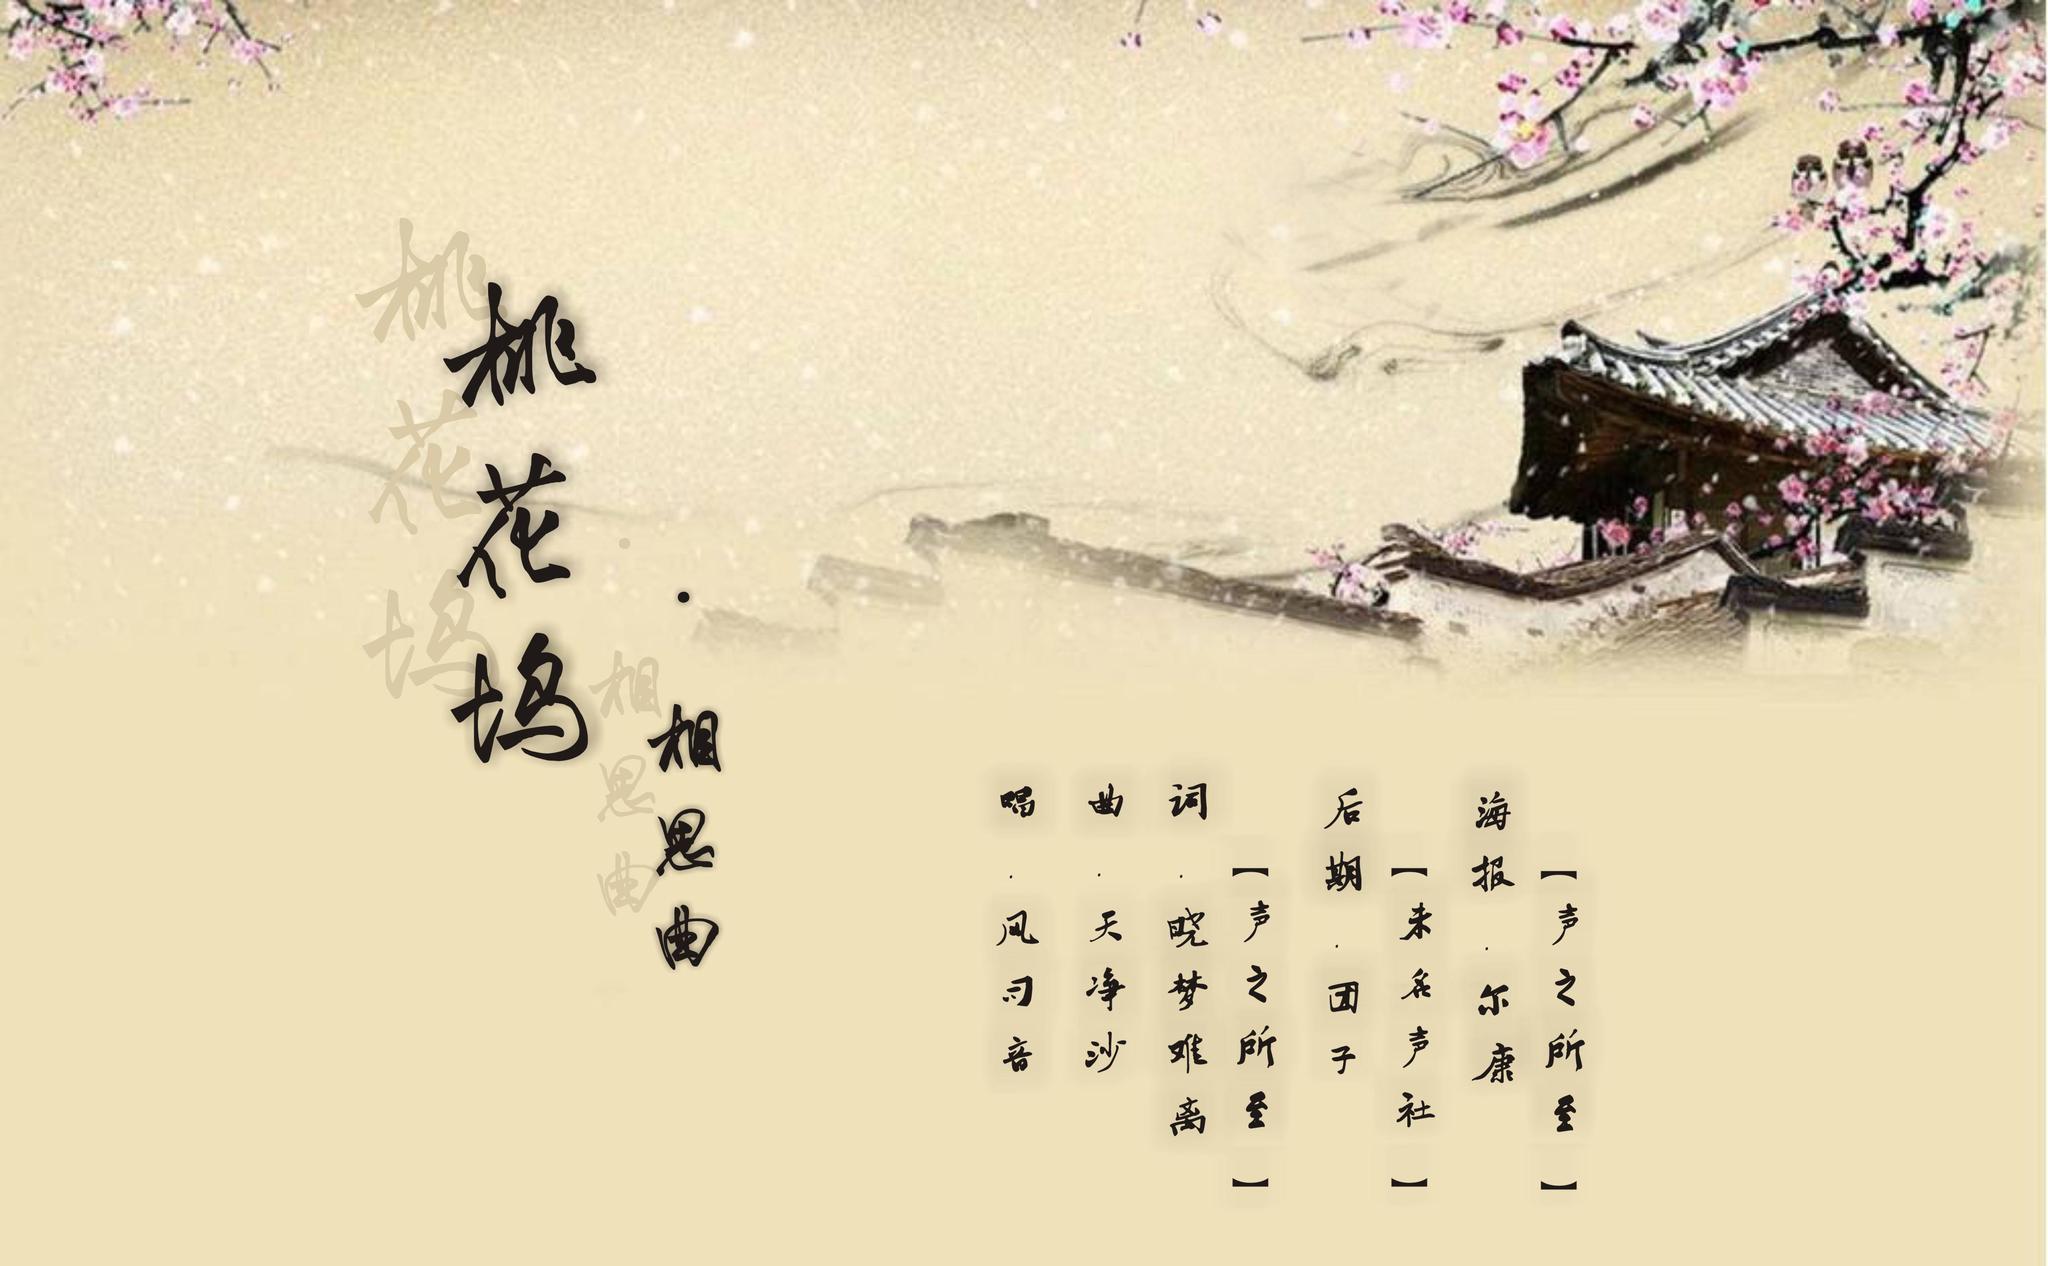 桃花坞
·相思曲
唱·风问音
曲·天净沙
词·晓梦难离
【声之所至】
后期·团子
【未名声社】
海报·尔康
【声之所至】